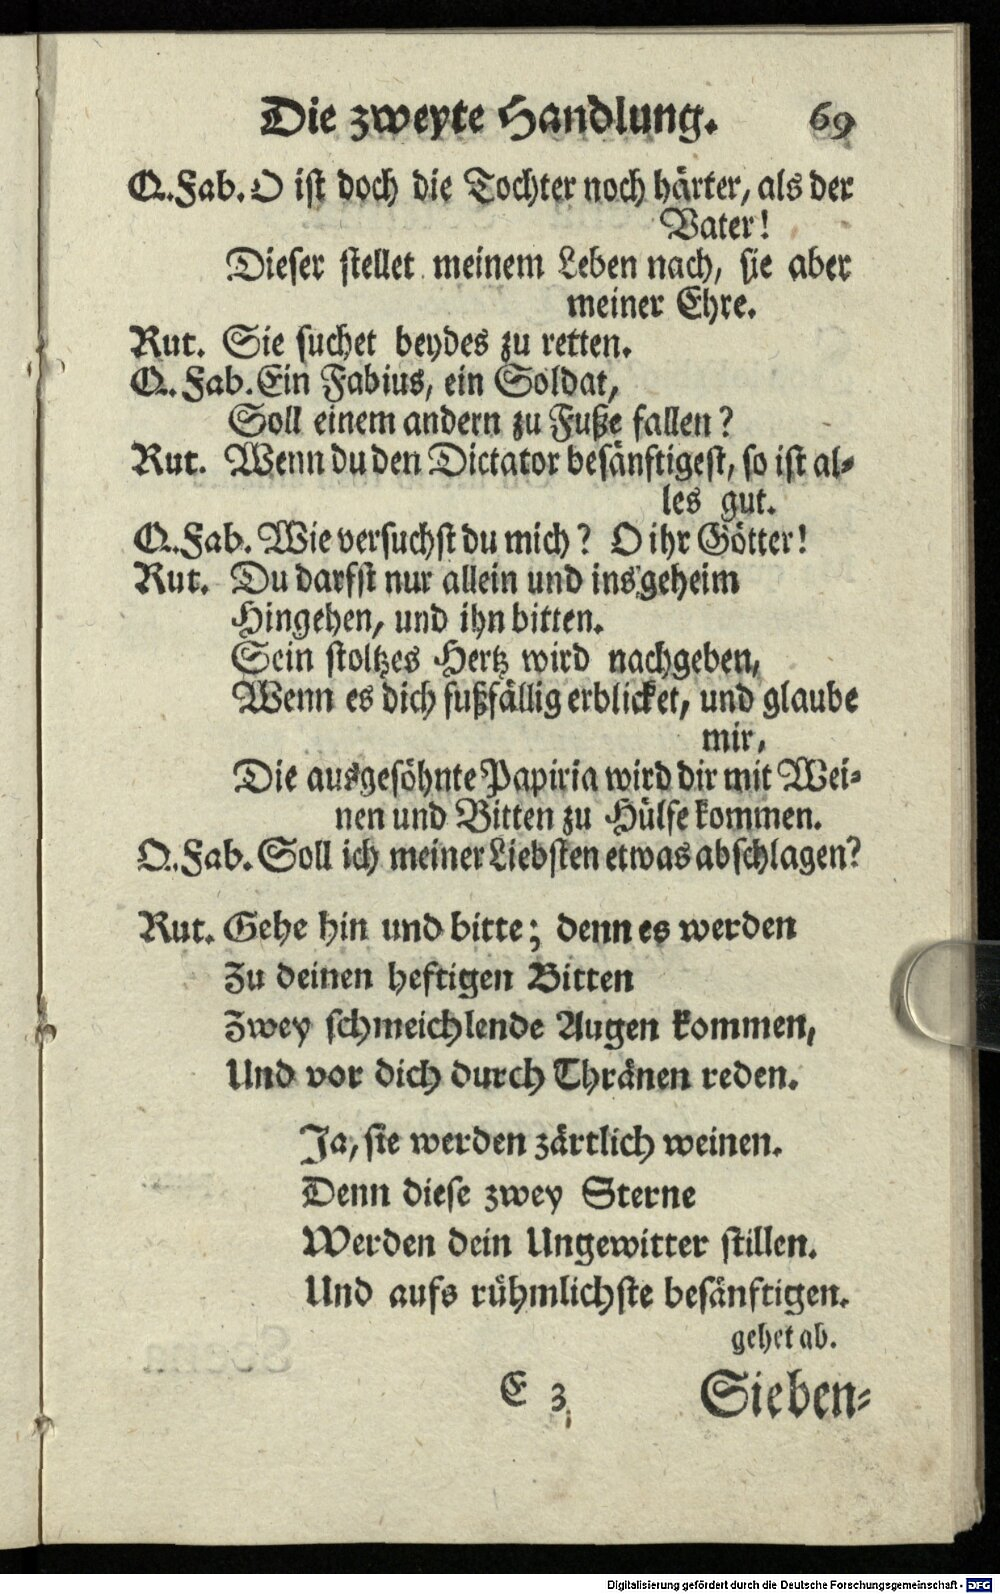 Die zweyte Handlung. 69
Q. Fab. O ist doch die Tochter noch härter, als der
Vater!
Dieser stellet meinem Leben nach, sie aber
meiner Ehre.
Rut. Sie suchet beydes zu retten.
Q. Fab. Ein Fabius, ein Soldat,
Soll einem andern zu Fuße fallen?
Rut. Wenn du den Dictator besänftigest, so ist al-
les gut.
Q. Fab. Wie versuchst du mich? O ihr Götter!
Rut. Du darfst nur allein und insgeheim
Hingehen, und ihn bitten.
Sein stoltzes Hertz wird nachgeben,
Wenn es dich fußfällig erblicket, und glaube
mir,
Die ausgesöhnte Papiria wird dir mit Wei-
nen und Bitten zu Hülfe kommen.
Q. Fab. Soll ich meiner Liebsten etwas abschlagen?
Rut. Gehe hin und bitte; denn es werden
Zu deinen heftigen Bitten
Zwey schmeichlende Augen kommen,
Und vor dich durch Thränen reden.
Ja, sie werden zärtlich weinen.
Denn diese zwey Sterne
Werden dein Ungewitter stillen.
Und aufs rühmlichste besänftigen.
gehet ab.
E 3 Sieben-
Digitalisierung gefördert durch die Deutsche Forschungsgemeinschaft - DFG